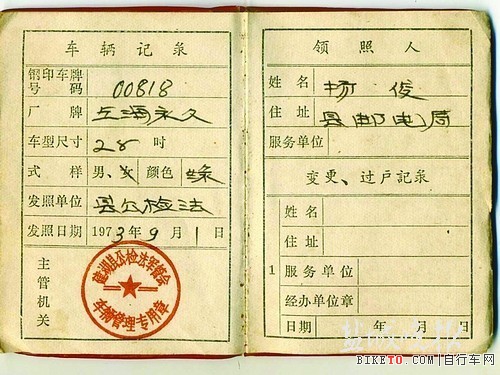 车辆记录
钢印车牌号码 00818
厂牌 上海永久
车型尺寸 28 吋
式样 男、女 颜色 绿
发照单位 县公检法
发照日期 1973年9月1日
主管机关
建湖县公检法军管会
车辆管理专用章
领照人
姓名 杨俊
住址 县邮电局
服务单位
变更、过户记录
1
姓名
住址
服务单位
经办单位章
日期 年 月 日
BIKETO.COM|自行车网